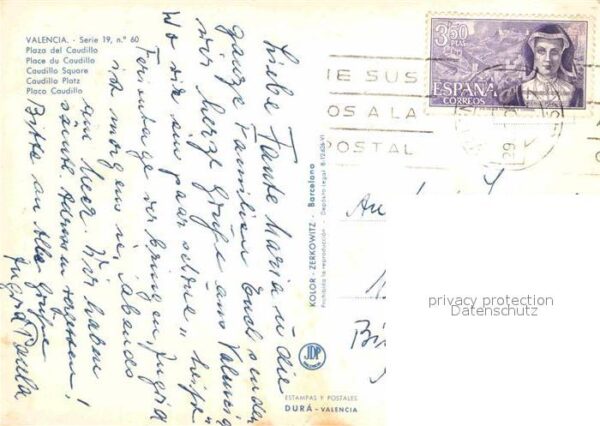 VALENCIA. - Serie 19, n.º 60
Plaza del Caudillo
Place du Caudillo
Caudillo Square
Caudillo Platz
Plaza Caudillo
Liebe Tante Maria u die
ganze Familien Euch senden
wir herzl Grüße aus Valencia
Wo wir ein paar schöne
Ferientage verbringen, Ingrid
ist morgens u. Abends
am Meer. Wir haben
sämtl. Adressen vergessen!
Bitte an Alle Grüße
Ingrid Paula
KOLOR-ZERKOWITZ - Barcelona
Prohibida la reproducción - Depósito legal B-12606-VI
JDP
ESTAMPAS Y POSTALES
DURÁ - VALENCIA
3,50
PTAS
ESPAÑA
CORREOS
IE SUS
OS A LA
POSTAL
29
An
privacy protection
Datenschutz